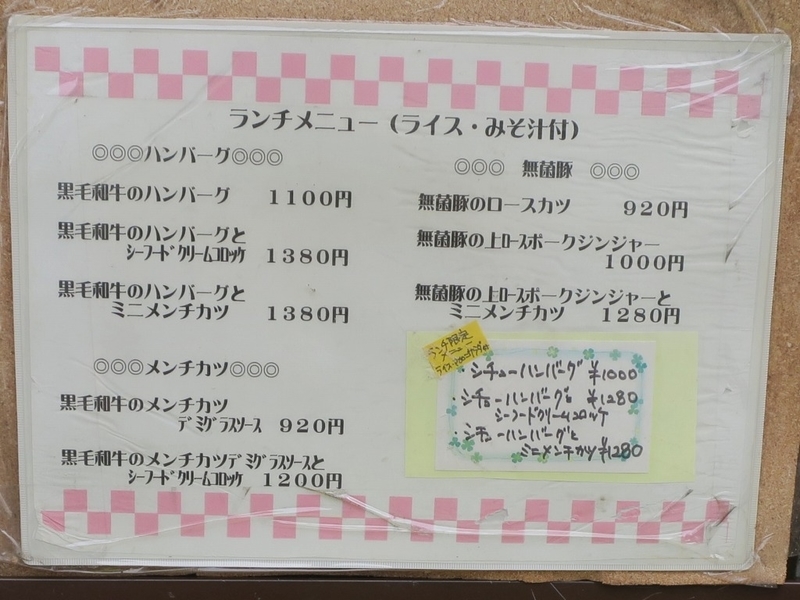 ランチメニュー（ライス・みそ汁付）
◎◎◎ハンバーグ◎◎◎
黒毛和牛のハンバーグ 1100円
黒毛和牛のハンバーグと
シーフードクリームコロッケ 1380円
黒毛和牛のハンバーグと
ミニメンチカツ 1380円
◎◎◎メンチカツ◎◎◎
黒毛和牛のメンチカツ
デミグラスソース 920円
黒毛和牛のメンチカツデミグラスソースと
シーフードクリームコロッケ 1200円
◎◎◎ 無菌豚 ◎◎◎
無菌豚のロースカツ 920円
無菌豚の上ロースポークジンジャー
1000円
無菌豚の上ロースポークジンジャーと
ミニメンチカツ 1280円
ランチ限定
メニュー
ライス
・シチューハンバーグ ¥1000
・シチューハンバーグと ¥1280
シーフードクリームコロッケ
・シチューハンバーグと
ミニメンチカツ ¥1280